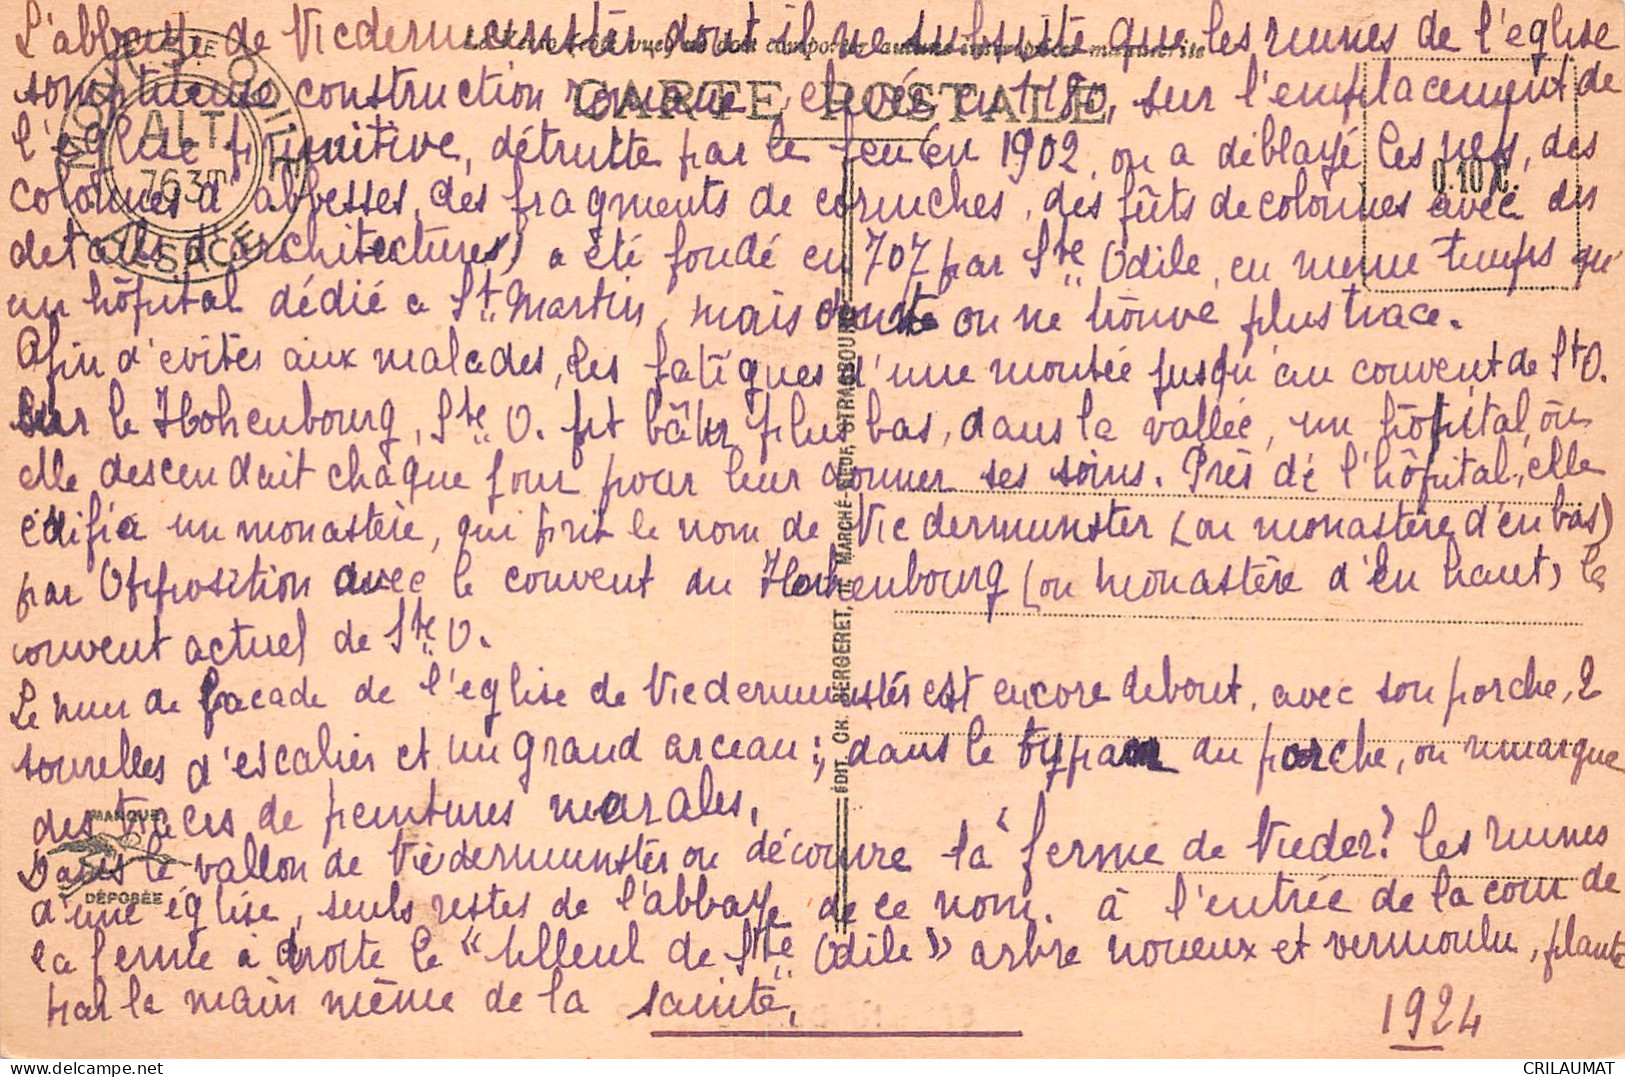 L'abbaye de Niedermunster dont il ne subsiste que les ruines de l'église
CARTE POSTALE
somptueuse construction romane, élevée en 1180, sur l'emplacement de
l'église primitive, détruite par le feu (en 1902, on a déblayé les nefs, des
MONT STE ODILE
ALT.
763m
ALSACE
0.10 C.
colonnes d'abbesses, des fragments de corniches, des fûts de colonnes avec des
détails d'architectures) a été fondé en 707 par Ste Odile, en même temps qu'
un hôpital dédié a St. Martin, mais dont on ne trouve plus trace.
Afin d'eviter aux malades, les fatigues d'une montée jusqu'au couvent de St O.
sur le Hohenbourg, Ste O. fit bâtir plus bas, dans la vallée, un hôpital, où
elle descendait chaque jour pour leur donner ses soins. Près de l'hôpital, elle
édifia un monastère, qui prit le nom de Niedermunster (ou monastère d'en bas)
par Opposition avec le couvent du Hohenbourg (ou monastère d'en haut) le
couvent actuel de Ste O.
Le mur de façade de l'église de Niedermunster est encore debout, avec son porche, 2
tourelles d'escalier et un grand arceau; dans le tympan du porche, on remarque
des traces de peintures murales.
Dans le vallon de Niedermunster on découvre la "ferme de Nieder". les ruines
d'une église, seuls restes de l'abbaye de ce nom. à l'entrée de la cour de
la ferme à droite le "tilleul de Ste Odile" arbre noueux et vermoulu, planté
par la main même de la sainte.
1924
MARQUE
DÉPOSÉE
ÉDIT. CH. BERGERET, MARCHÉ-NEUF, STRASBOURG
CRILAUMAT